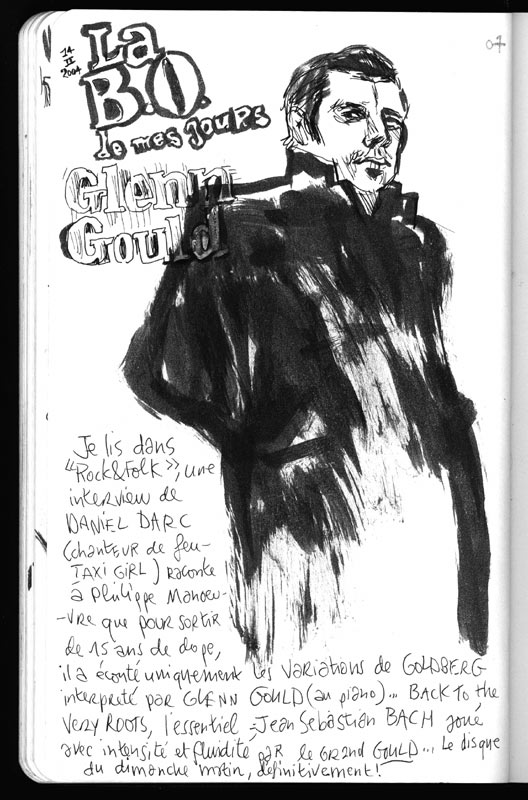 14
II
2004
La
B.O.
de mes jours
Glenn
Gould
07
Je lis dans
"Rock&Folk", une
interview de
DANIEL DARC
(chanteur de feu-
TAXI GIRL) raconte
à Philippe Manoeu-
-vre que pour sortir
de 15 ans de dope,
il a écouté uniquement les variations de GOLDBERG
interpreté par GLENN GOULD (au piano)... BACK To the
VERY ROOTS, l'essentiel : Jean Sebastian BACH joué
avec intensité et fluidité par le Grand GOULD... Le disque
du dimanche matin, définitivement!